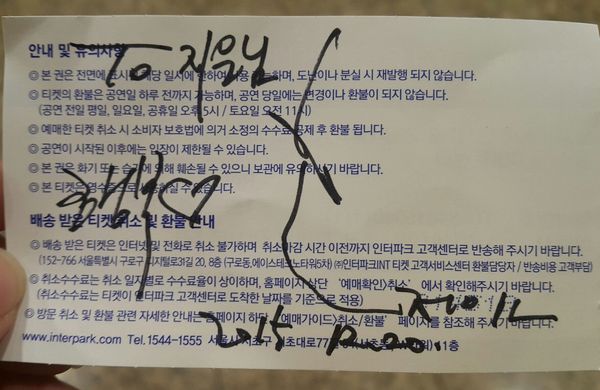 안내 및 유의사항
To 지우님
◎ 본 권은 전면에 표시된 해당 일시에 한하여 사용 가능하며, 도난이나 분실 시 재발행 되지 않습니다.
◎ 티켓의 환불은 공연일 하루 전까지 가능하며, 공연 당일에는 변경이나 환불이 되지 않습니다.
(공연 전일 평일, 일요일, 공휴일 오후 5시 / 토요일 오전 11시)
◎ 예매한 티켓 취소 시 소비자 보호법에 의거 소정의 수수료 공제 후 환불 됩니다.
◎ 공연이 시작된 이후에는 입장이 제한될 수 있습니다.
◎ 본 권은 화기 또는 습기에 의해 훼손될 수 있으니 보관에 유의하시기 바랍니다.
◎ 본 티켓은 영수증으로 사용하실 수 있습니다.
배송 받은 티켓 취소 및 환불 안내
◎ 배송 받은 티켓은 인터넷 및 전화로 취소 불가하며 취소마감 시간 이전까지 인터파크 고객센터로 반송해 주시기 바랍니다.
(152-766 서울특별시 구로구 디지털로31길 20, 8층 (구로동,에이스테크노타워5차) ㈜인터파크INT 티켓 고객서비스센터 환불담당자 / 반송비용 고객부담)
◎ 취소수수료는 취소 일자별로 수수료율이 상이하며, 홈페이지 상단 '예매확인/취소' 에서 확인해주시기 바랍니다.
(취소수수료는 티켓이 인터파크 고객센터로 도착한 날짜를 기준으로 적용)
◎ 방문 취소 및 환불 관련 자세한 안내는 홈페이지 하단 '예매가이드>취소/환불' 페이지를 참조해 주시기 바랍니다.
2015
www.interpark.com Tel.1544-1555 서울시 서초구 서초대로77길 11층